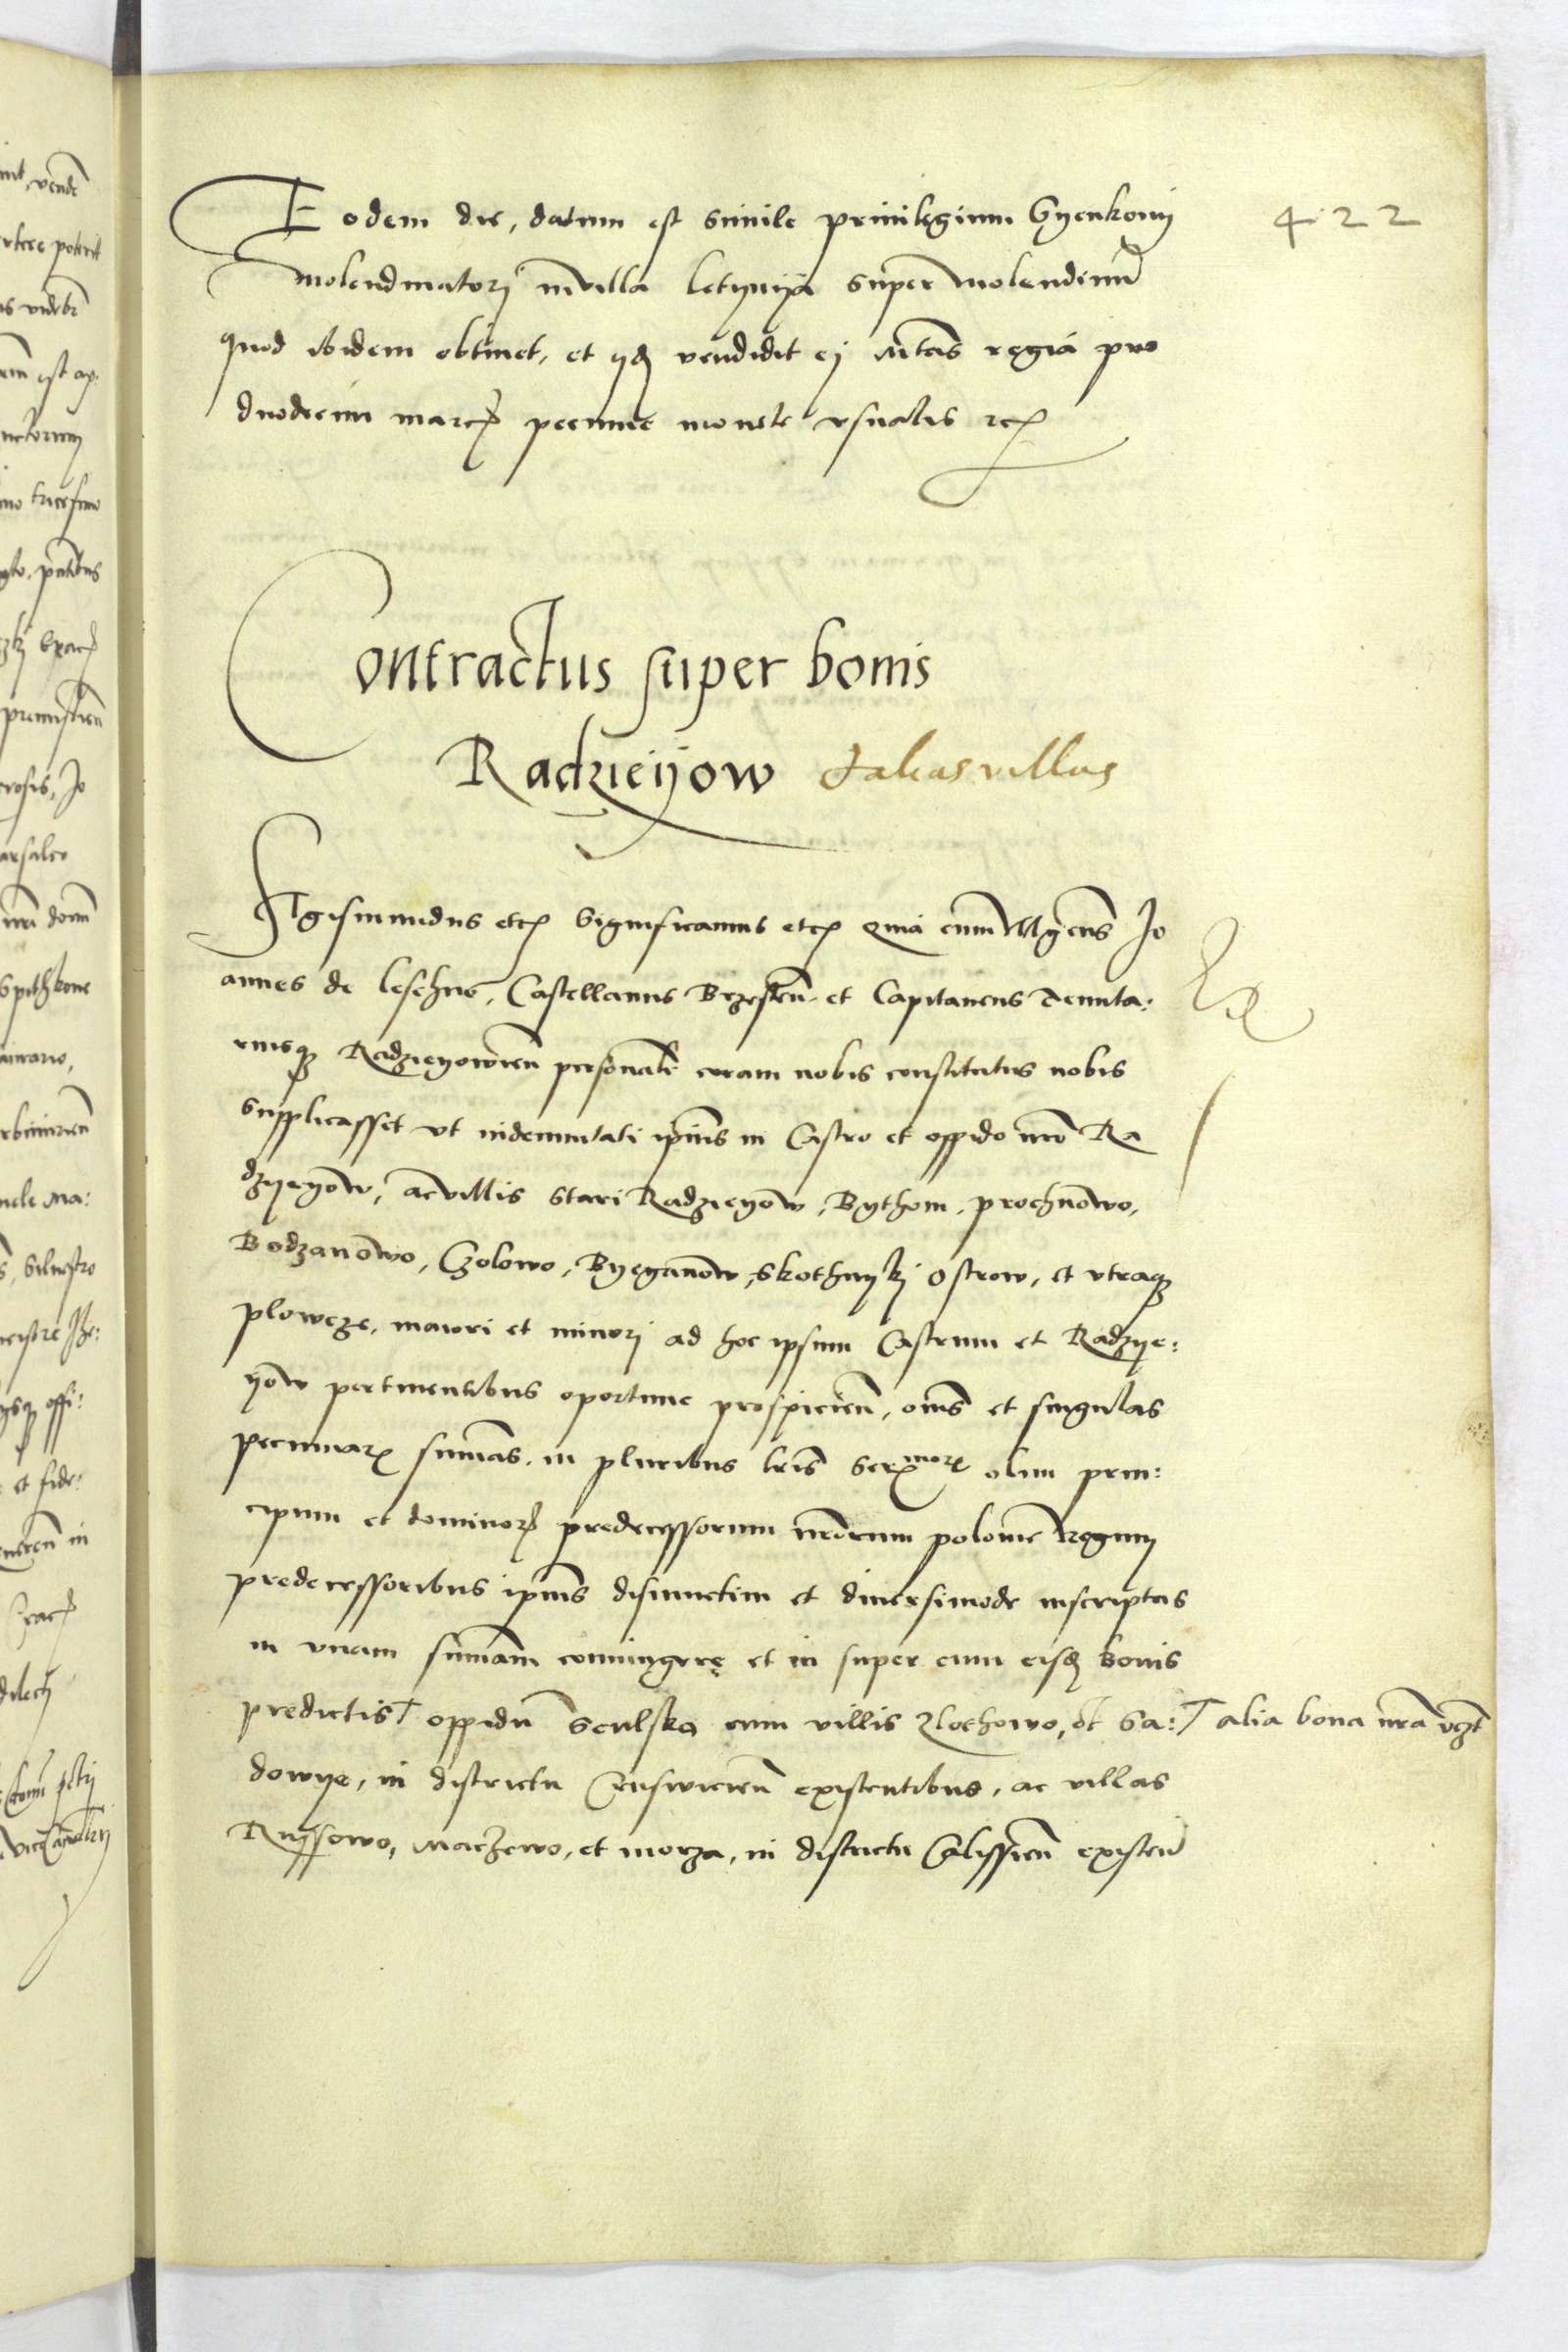 422
Eodem die, datum est simile privilegium Gyenkony
molendinatorj in villa Letynya super molendinũ
quod ibidem obtinet, et qđ vendidit ej Mtas regia pro
duodecim marcȝ pecunie monete vsualis etcȝ
Contractus super bonis
Radzieÿow et alias villas
Sigismundus etcȝ Significamus etcȝ Quia cum Mgcus Jo
annes de Leschne, Castellanus Brzesteñ et Capitaneus Tenuta:
riusqȝ Radzieyowieñ personalr coram nobis constitutus nobis
supplicasset vt indemnitati ipius in Castro et oppido nro Ra
dzyeyow, ac villis Stari Radzieyow, Bythom, prochnowo,
Bodzanowo, Czolowo, Byeganow, Skothnykj Ostrow, et vtraqȝ
plowcze, maiori et minorj ad hoc ipsum Castrum et Radzye:
yow pertinentibus oportune prospicieñ, oms et singulas
pecuniarȝ sumas, in pluribus lris Serȝmorȝ olim prin:
cipum et dominorȝ predecessorum nrorum polonie Regum
predecessoribus ipius disiunctim et diuersimode inscriptas
in vnam sumam coniungere et in super cum eisđ bonis
predictis⸆ oppidũ Sculsko cum villis Zlochowo, et Sa: ⸆ alia bona nra vczt
dowye, in districtu Crusvicieñ existentibus, ac villas
Russowo, Maczewo, et morza, in districtu Calissieñ existeñ